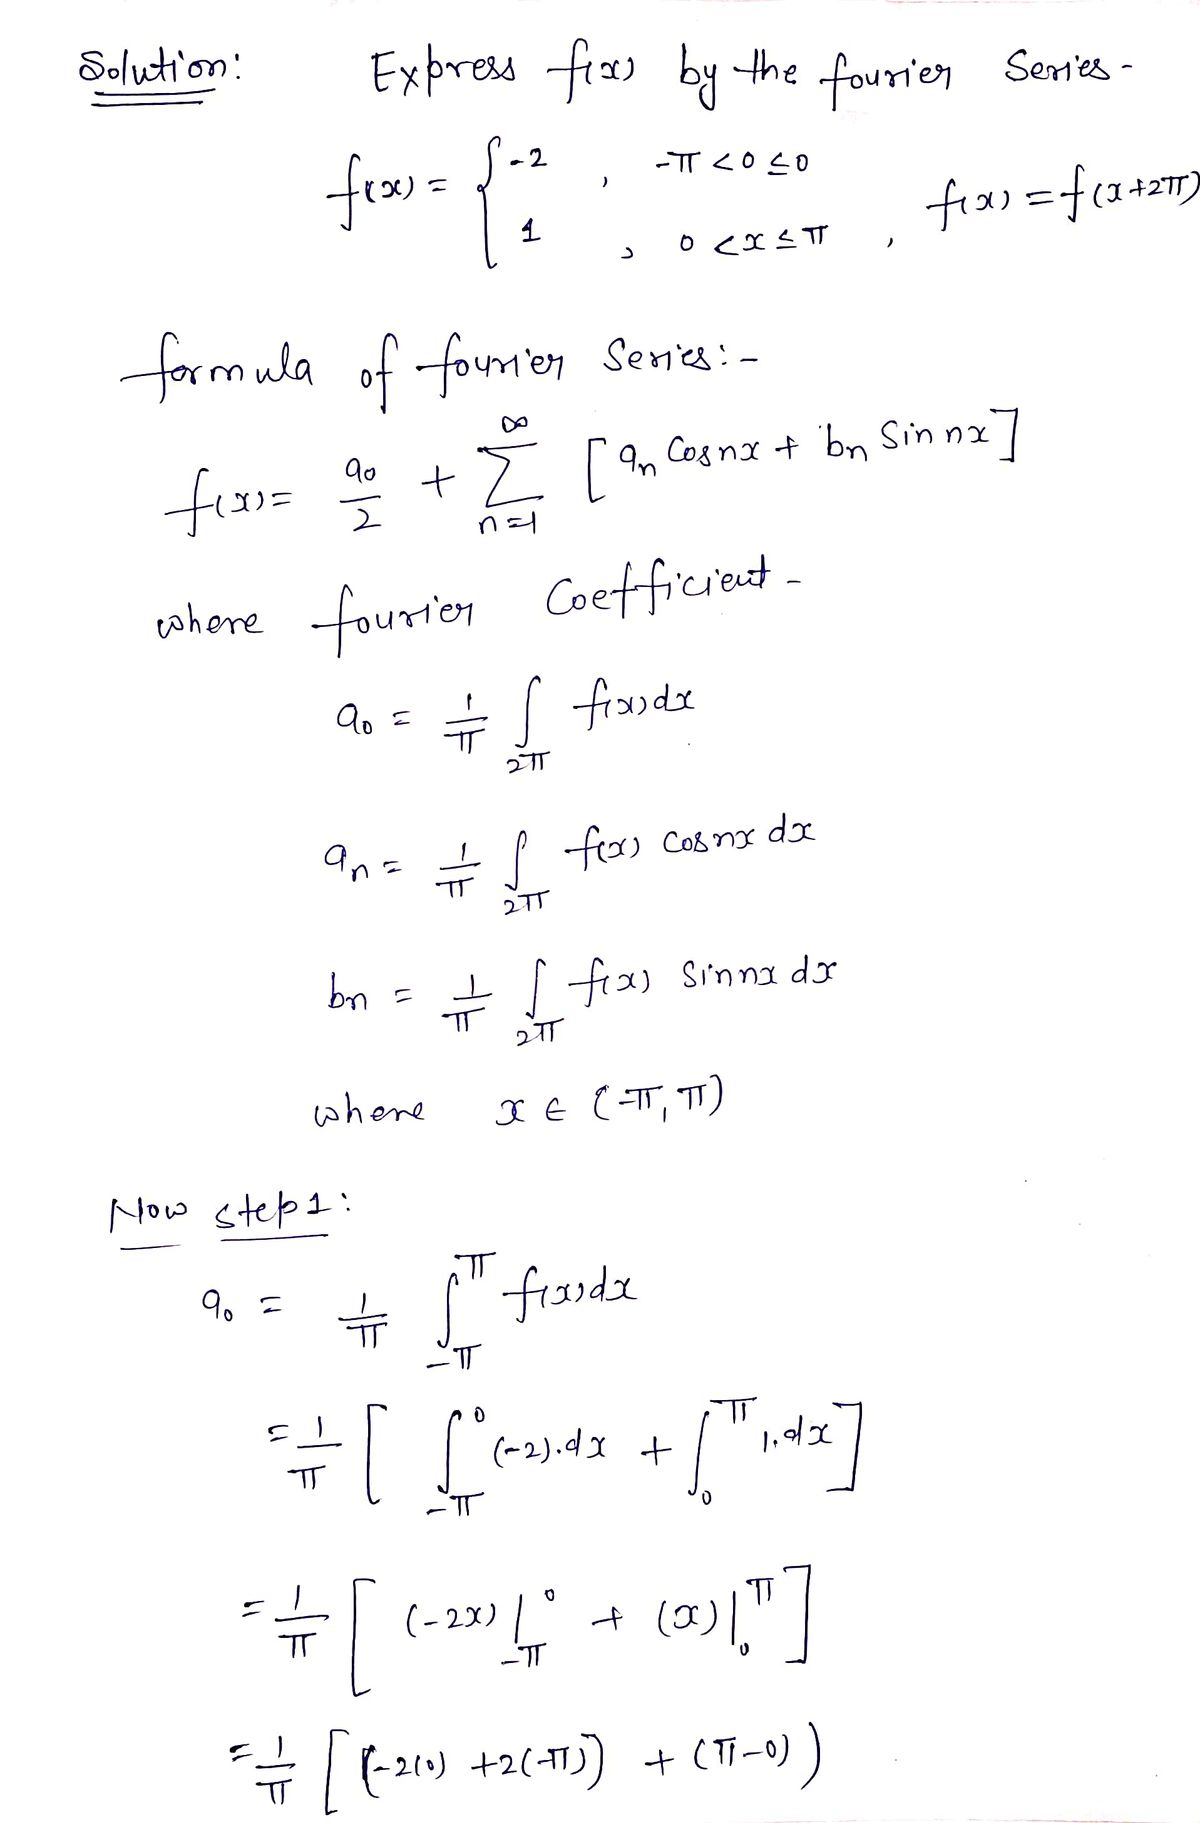 Solution: Express f(x) by the fourier Series -
f(x) = { -2 , -π < 0 ≤ 0
1 , 0 < x ≤ π , f(x) = f(x+2π)
formula of fourier Series: -
f(x) = a₀/2 + ∑_{n=1}^{∞} [aₙ Cosnx + bₙ Sin nx]
where fourier Coefficient -
a₀ = 1/π ∫_{2π} f(x)dx
aₙ = 1/π ∫_{2π} f(x) cosnx dx
bn = 1/π ∫_{2π} f(x) Sinnx dx
where x ∈ (-π, π)
Now step1:
a₀ = 1/π ∫_{-π}^{π} f(x)dx
= 1/π [ ∫_{-π}^{0} (-2).dx + ∫_{0}^{π} 1.dx ]
= 1/π [ (-2x)|_{-π}^{0} + (x)|_{0}^{π} ]
= 1/π [ (-2(0) +2(-π)) + (π-0) )